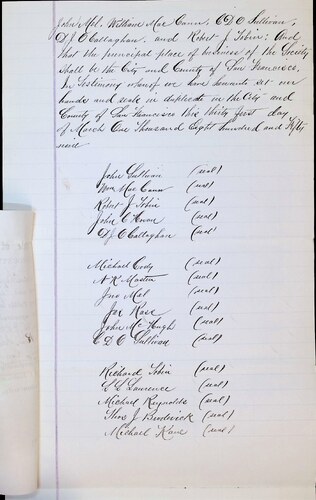 John Mel, William Mac Cann, C. D. O. Sullivan,
D. J. O'Callaghan, and Robert J. Tobin; And
that the principal place of business of the Society
shall be the City and County of San Francisco.
In Testimony whereof we have hereunto set our
hands and seals in duplicate in the City and
County of San Francisco this thirty first day
of March One Thousand Eight hundred and Fifty
nine
John Sullivan (seal)
Wm Mac Cann (seal)
Robert J. Tobin (seal)
John (seal)
D. J. O'Callaghan (seal)
Michael Cody (seal)
N. K. Masten (seal)
Jno Mel (seal)
Jos Rose (seal)
John Mc Hugh (seal)
C. D. O Sullivan (seal)
Richard Tobin (seal)
Lawrence (seal)
Michael Reynolds (seal)
Thos J. Broderick (seal)
Michael Kane (seal)